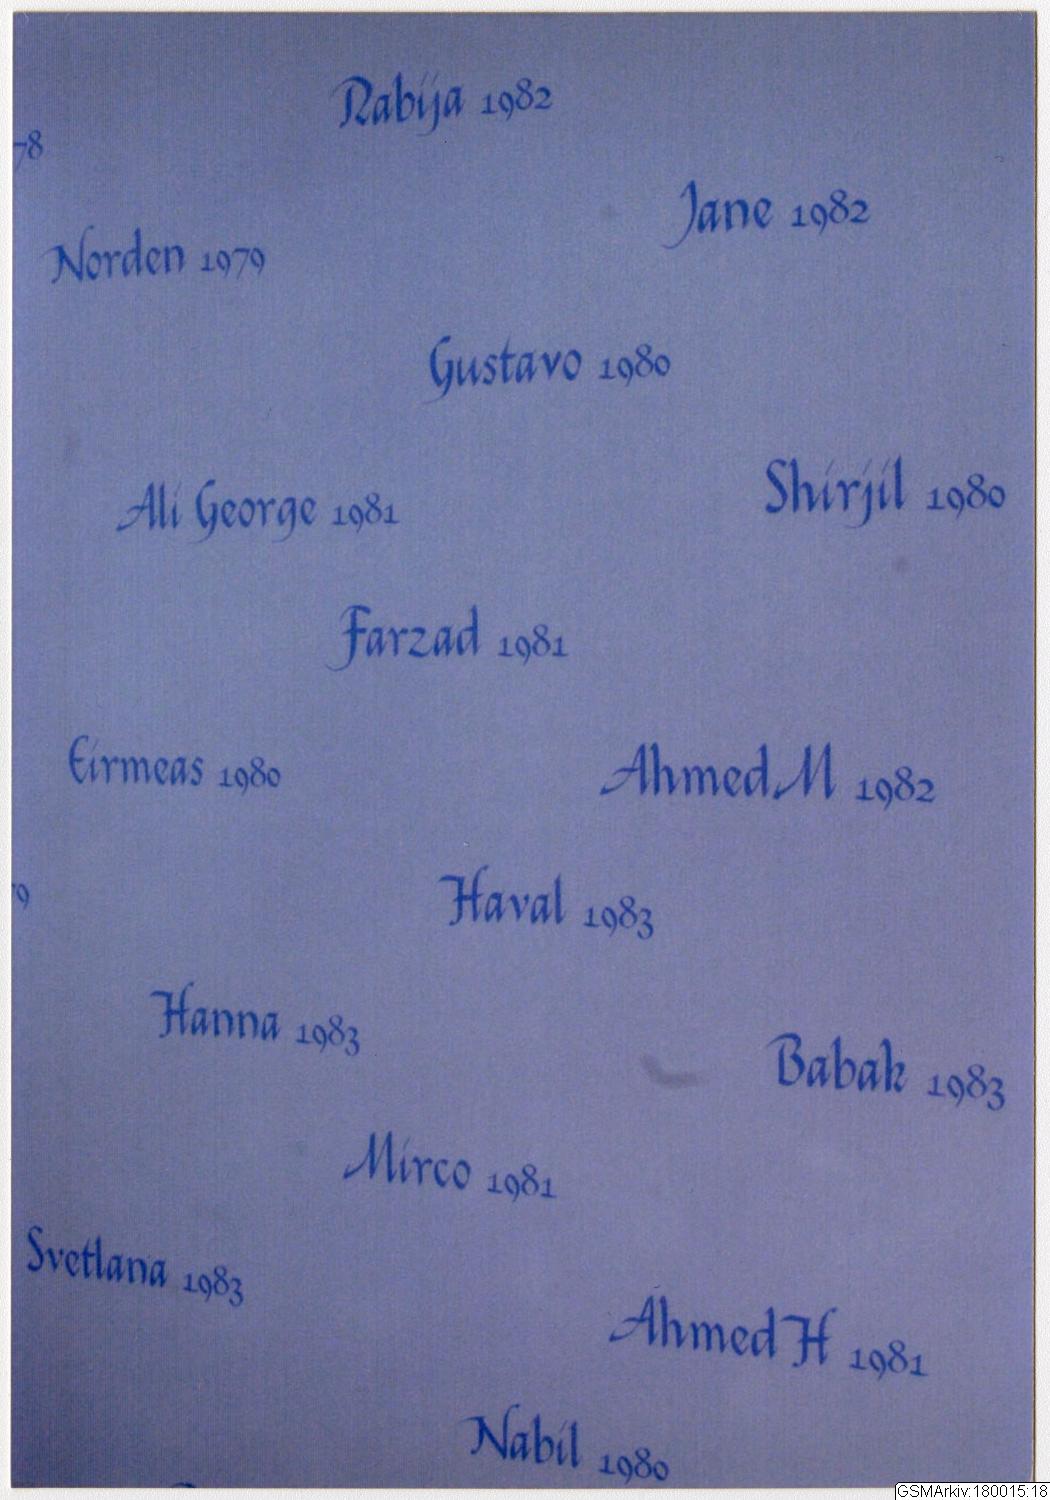 Rabija 1982
78
Jane 1982
Norden 1979
Gustavo 1980
Shirjil 1980
Ali George 1981
Farzad 1981
Eirmeas 1980
Ahmed M 1982
9
Haval 1983
Hanna 1983
Babak 1983
Mirco 1981
Svetlana 1983
Ahmed H 1981
Nabil 1980
GSMArkiv:180015:18